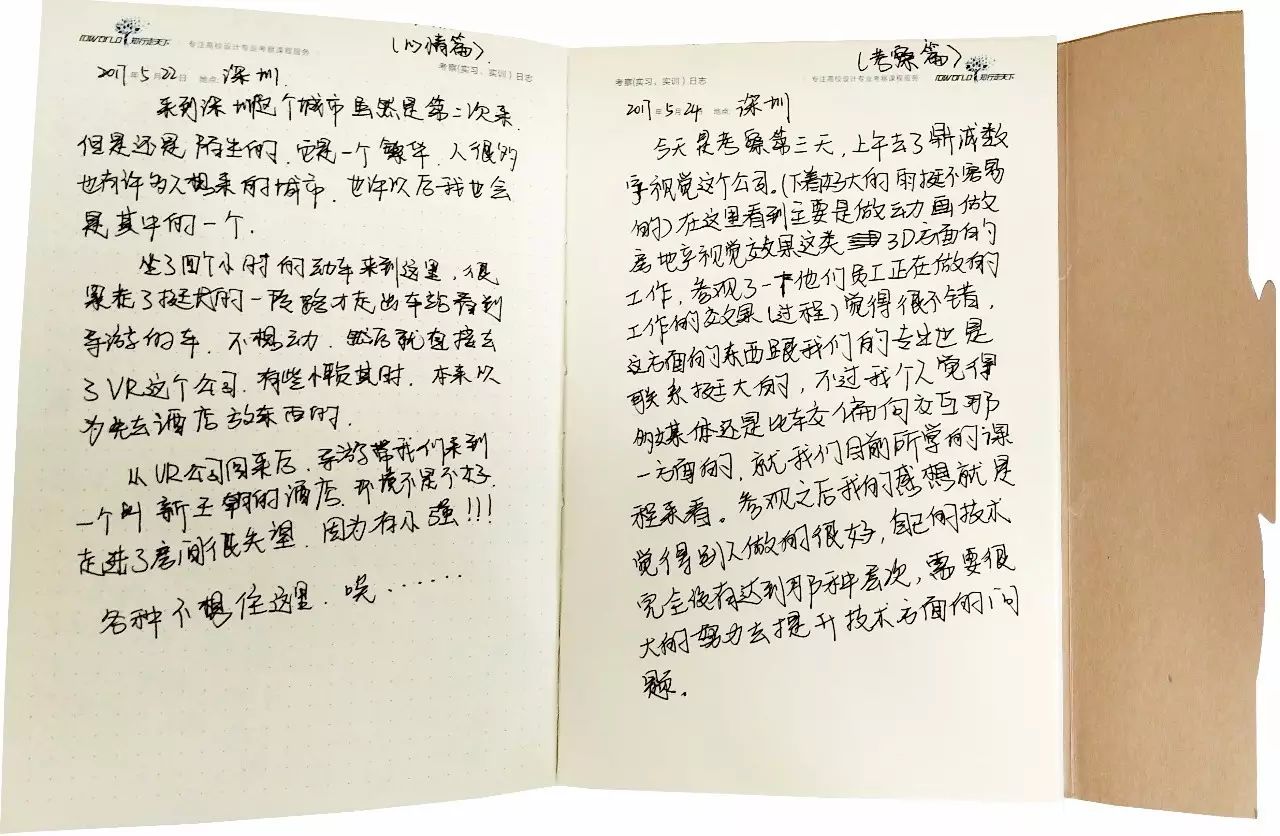 IOWORLD 知行走天下 专注高校设计专业考察课程服务
(心情篇)
考察(实习、实训)日志
2017年5月22日 地点: 深圳
来到深圳这个城市虽然是第二次来.
但是还是陌生的.它是一个繁华.人很多
也有许多人想来的城市.也许以后我也会
是其中的一个.
坐了四个小时的动车来到这里.很
累走了挺大的一段路才走出车站看到
导游的车.不想动.然后就直接去
了VR这个公司.有些小职其时.本来以
为先去酒店放东西的.
从VR公司回来后.导游带我们来到
一个叫新王朝的酒店.环境不是不太好.
走进了房间很失望.因为有小强!!!
各种不想住这里.唉......
(考察篇)
考察(实习、实训)日志 专注高校设计专业考察课程服务 IOWORLD 知行走天下
2017年5月24日 地点: 深圳
今天是考察第三天,上午去了鼎诚数
字视觉这个公司.(下着好大的雨挺不容易
的)在这里看到主要是做动画做
房地产视觉效果这类3D方面的
工作,参观了一下他们员工正在做的
工作的效果(过程)觉得很不错,
这方面的东西跟我们的专业也是
联系挺大的,不过我个人觉得
多媒体还是比较偏向交互那
一方面的,就我们目前所学的课
程来看。参观之后我的感想就是
觉得别人做的很好,自己的技术
完全没有达到那种层次,需要很
大的努力去提升技术方面的问
题.